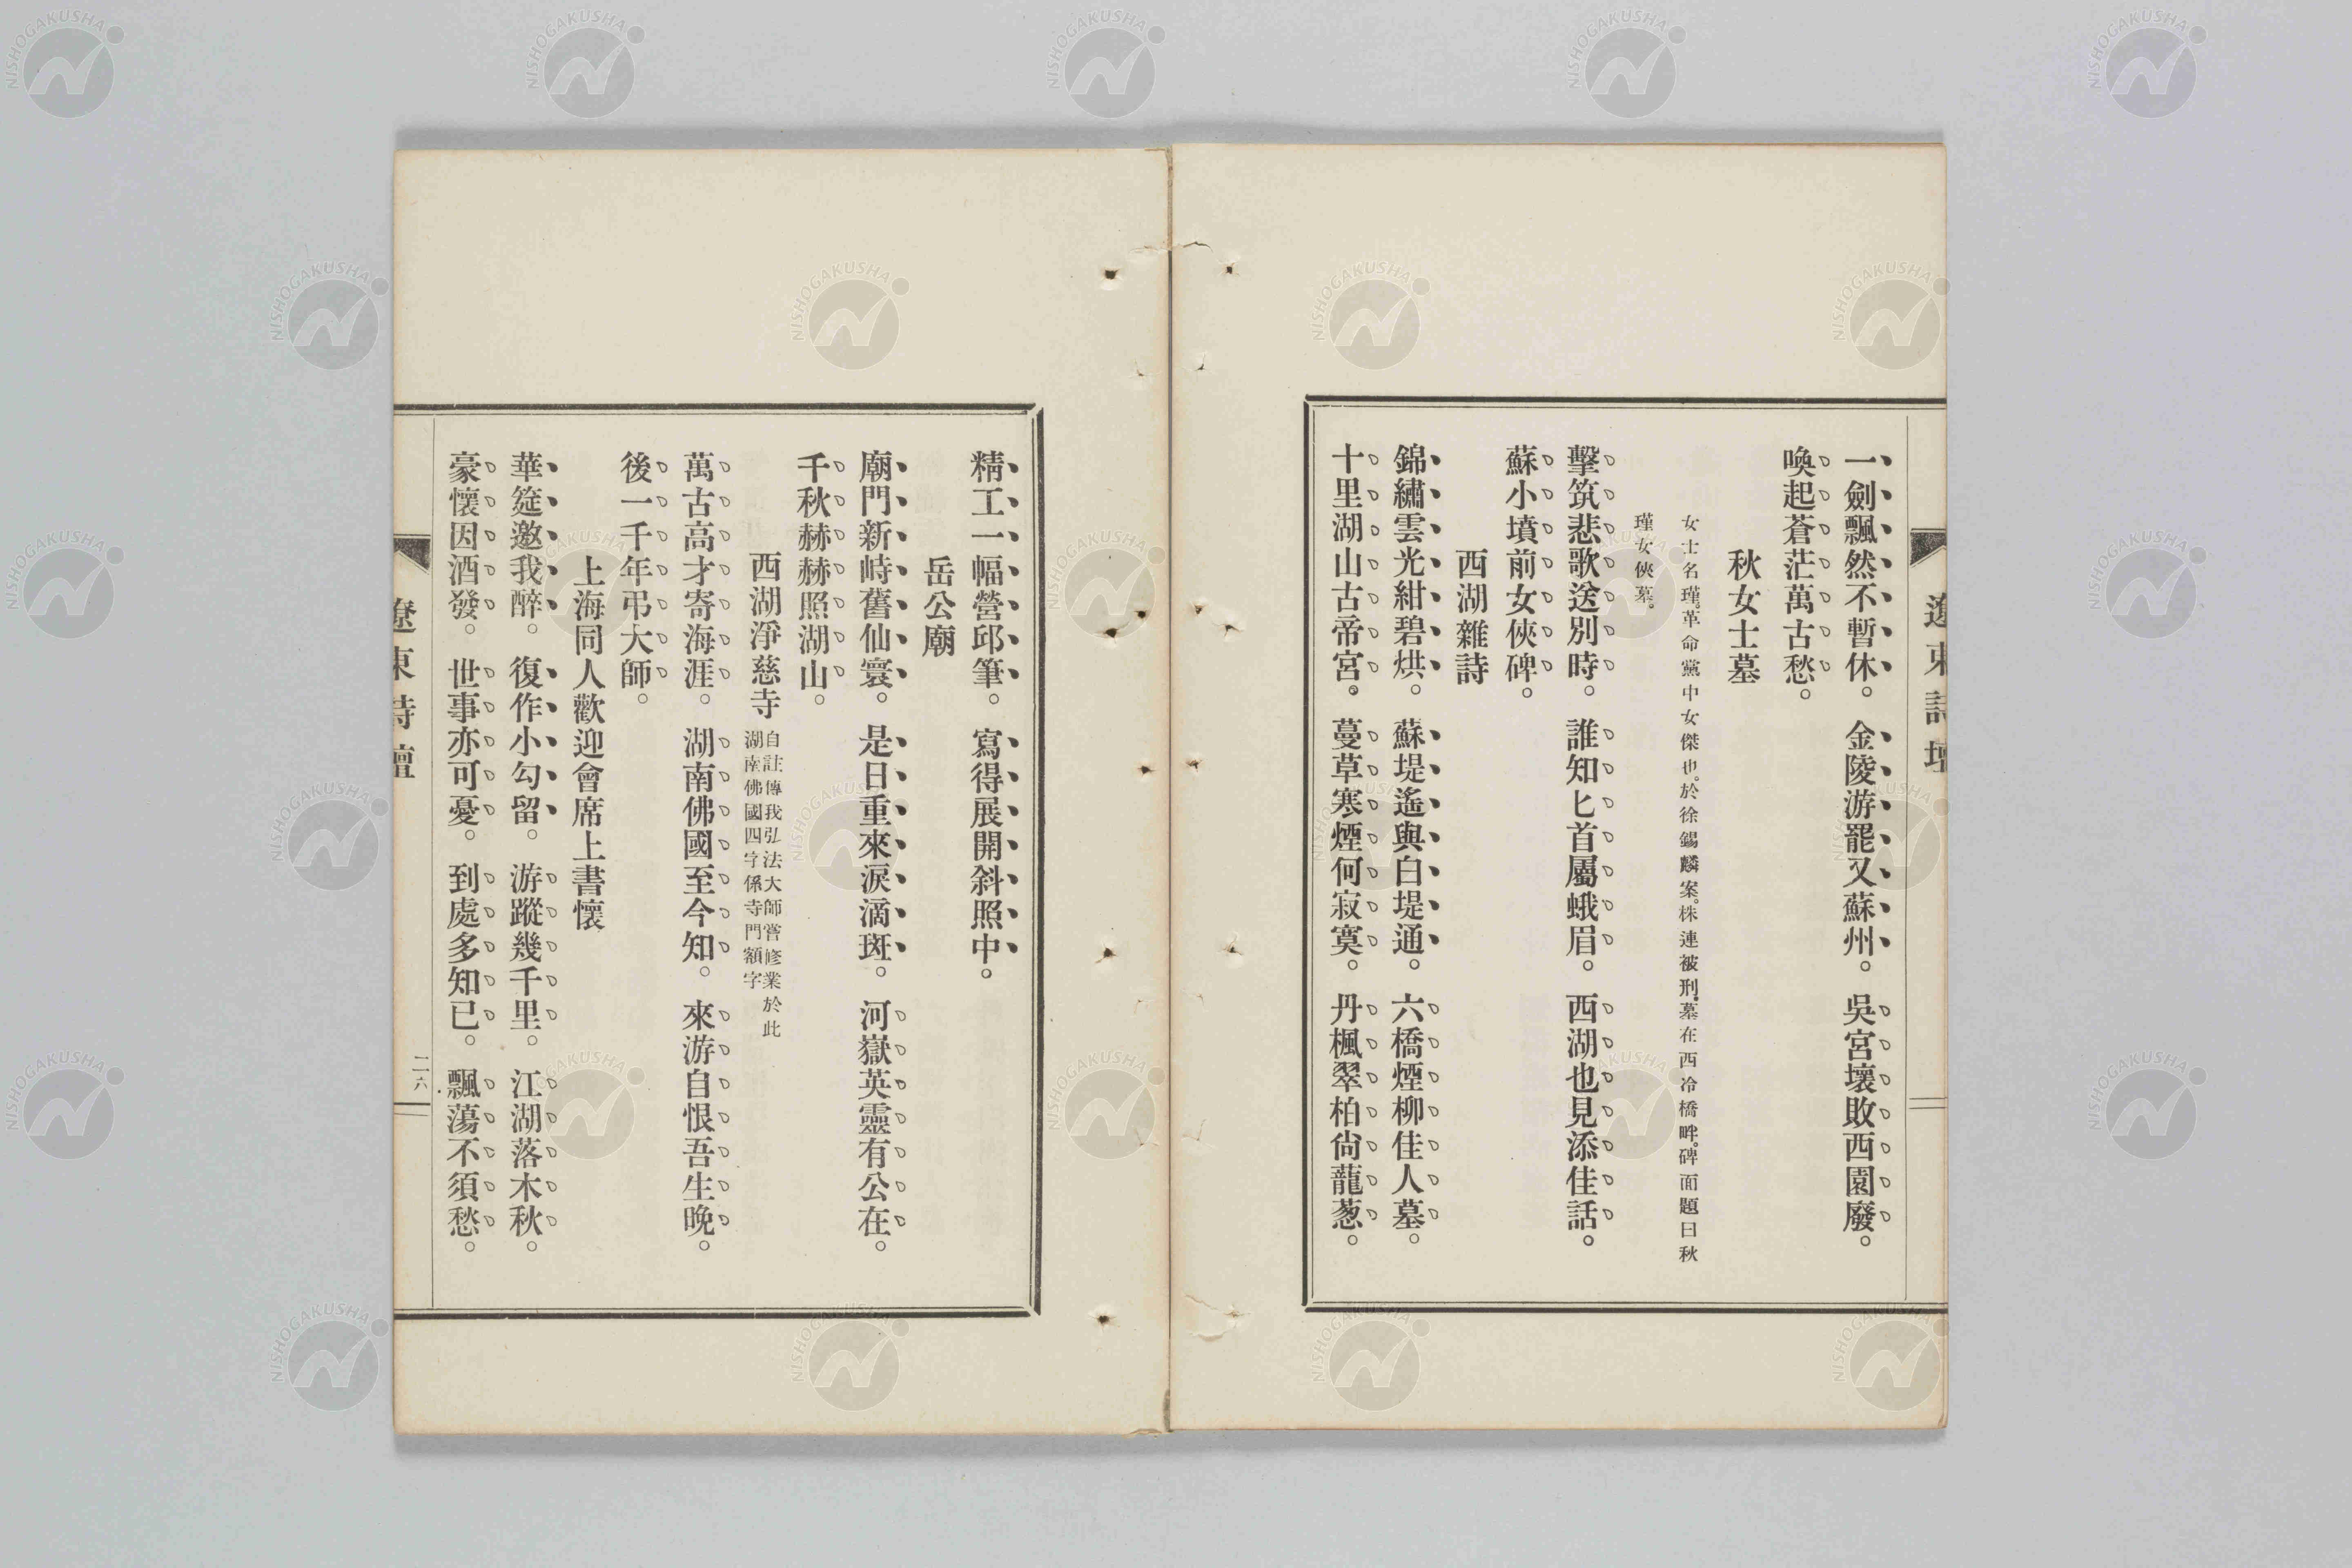 遼東詩壇
一劍飄然不暫休。金陵游罷又蘇州。吳宮壞敗西園廢。
喚起蒼茫萬古愁。
秋女士墓
女士名瑾。革命黨中女傑也。於徐錫麟案。株連被刑。墓在西冷橋畔。碑面題曰秋
瑾女俠墓。
擊筑悲歌送別時。誰知匕首屬蛾眉。西湖也見添佳話。
蘇小墳前女俠碑。
西湖雜詩
錦繡雲光紺碧烘。蘇堤遙與白堤通。六橋煙柳佳人墓。
十里湖山古帝宮。蔓草寒煙何寂寞。丹楓翠柏尙蘢蔥。
精工一幅營邱筆。寫得展開斜照中。
岳公廟
廟門新峙舊仙寰。是日重來淚滴斑。河嶽英靈有公在。
千秋赫赫照湖山。
西湖淨慈寺
自註傳我弘法大師嘗修業於此
湖南佛國四字係寺門額字
萬古高才寄海涯。湖南佛國至今知。來游自恨吾生晚。
後一千年弔大師。
上海同人歡迎會席上書懷
華筵邀我醉。復作小勾留。游蹤幾千里。江湖落木秋。
豪懷因酒發。世事亦可憂。到處多知已。飄蕩不須愁。
遼東詩壇
二六
NISHOGAKUSHA